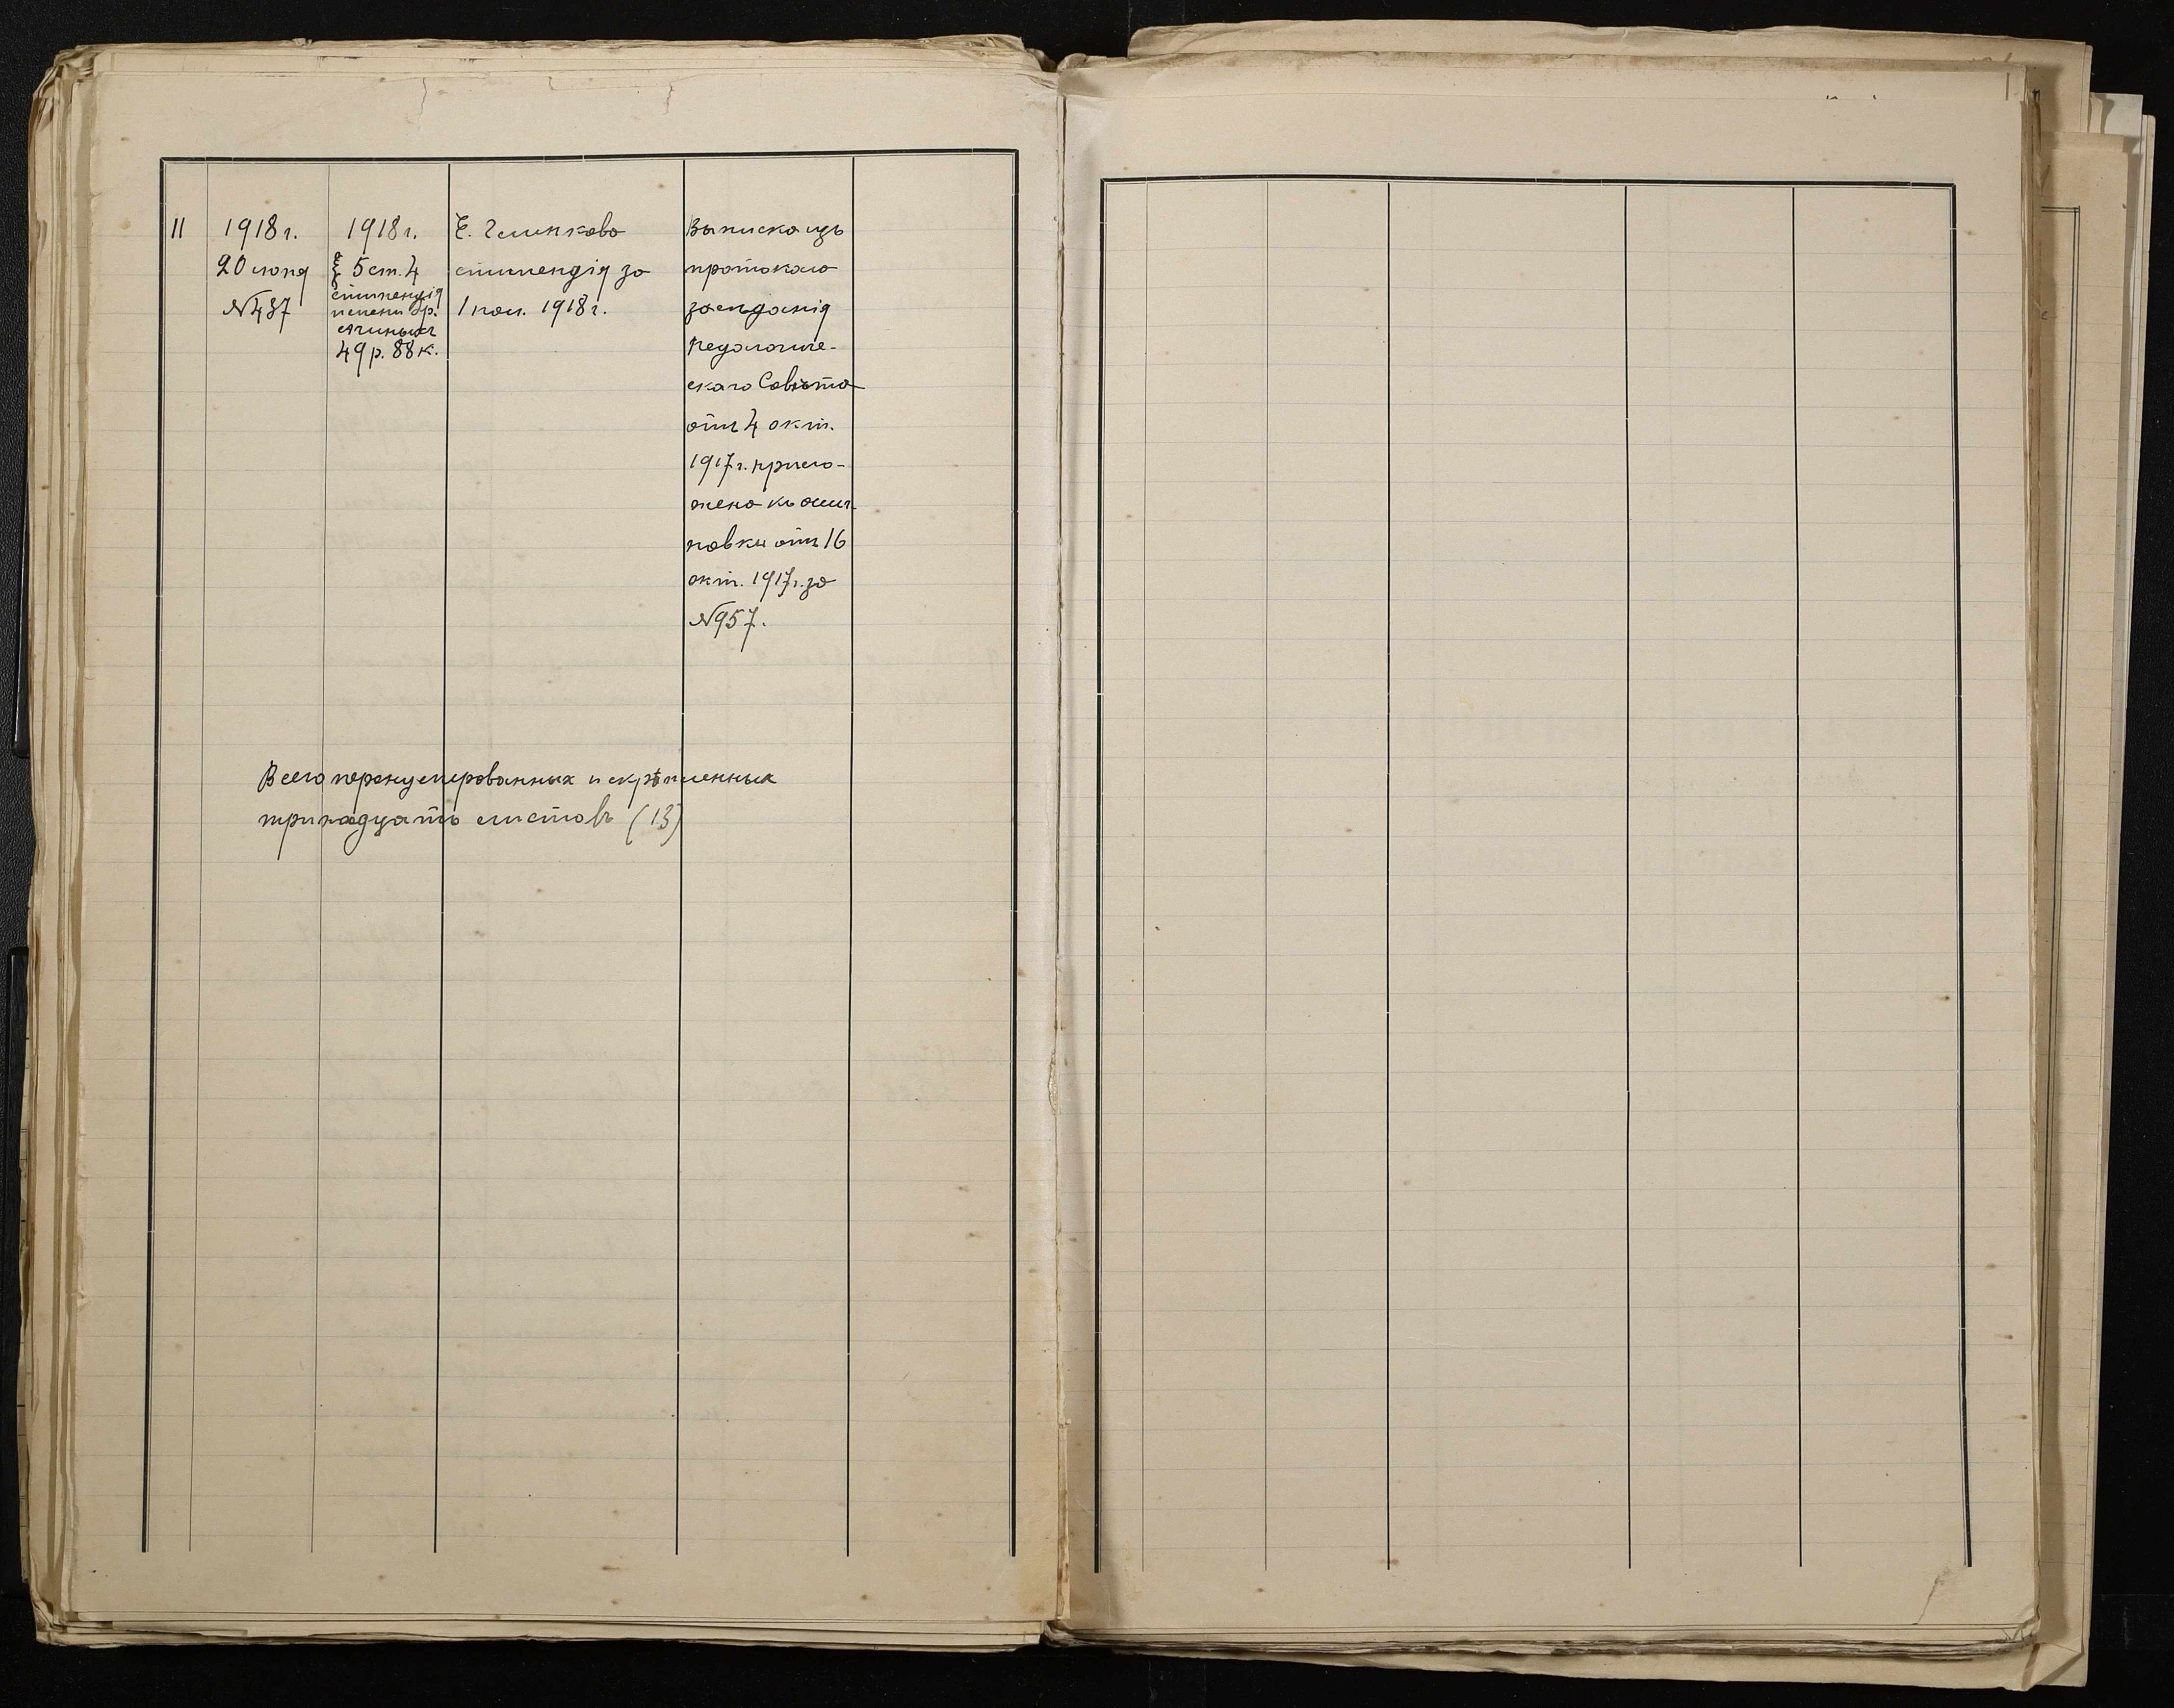 11
1918 г.
20 іюня
№ 487
1918 г.
§ 5 ст. 4
стипендія
имени бр.
49 р. 88 к.
Е.
стипендія за
1 пол. 1918 г.
Выписка изъ
протокола
засѣданія
Педагогиче-
скаго Совѣта
отъ 4 окт.
1917 г. прило-
жена къ ассиг-
новкѣ отъ 16
окт. 1917 г. за
№ 957.
Всего перенумерованныхъ и скрѣпленныхъ
тринадцать листовъ (13)